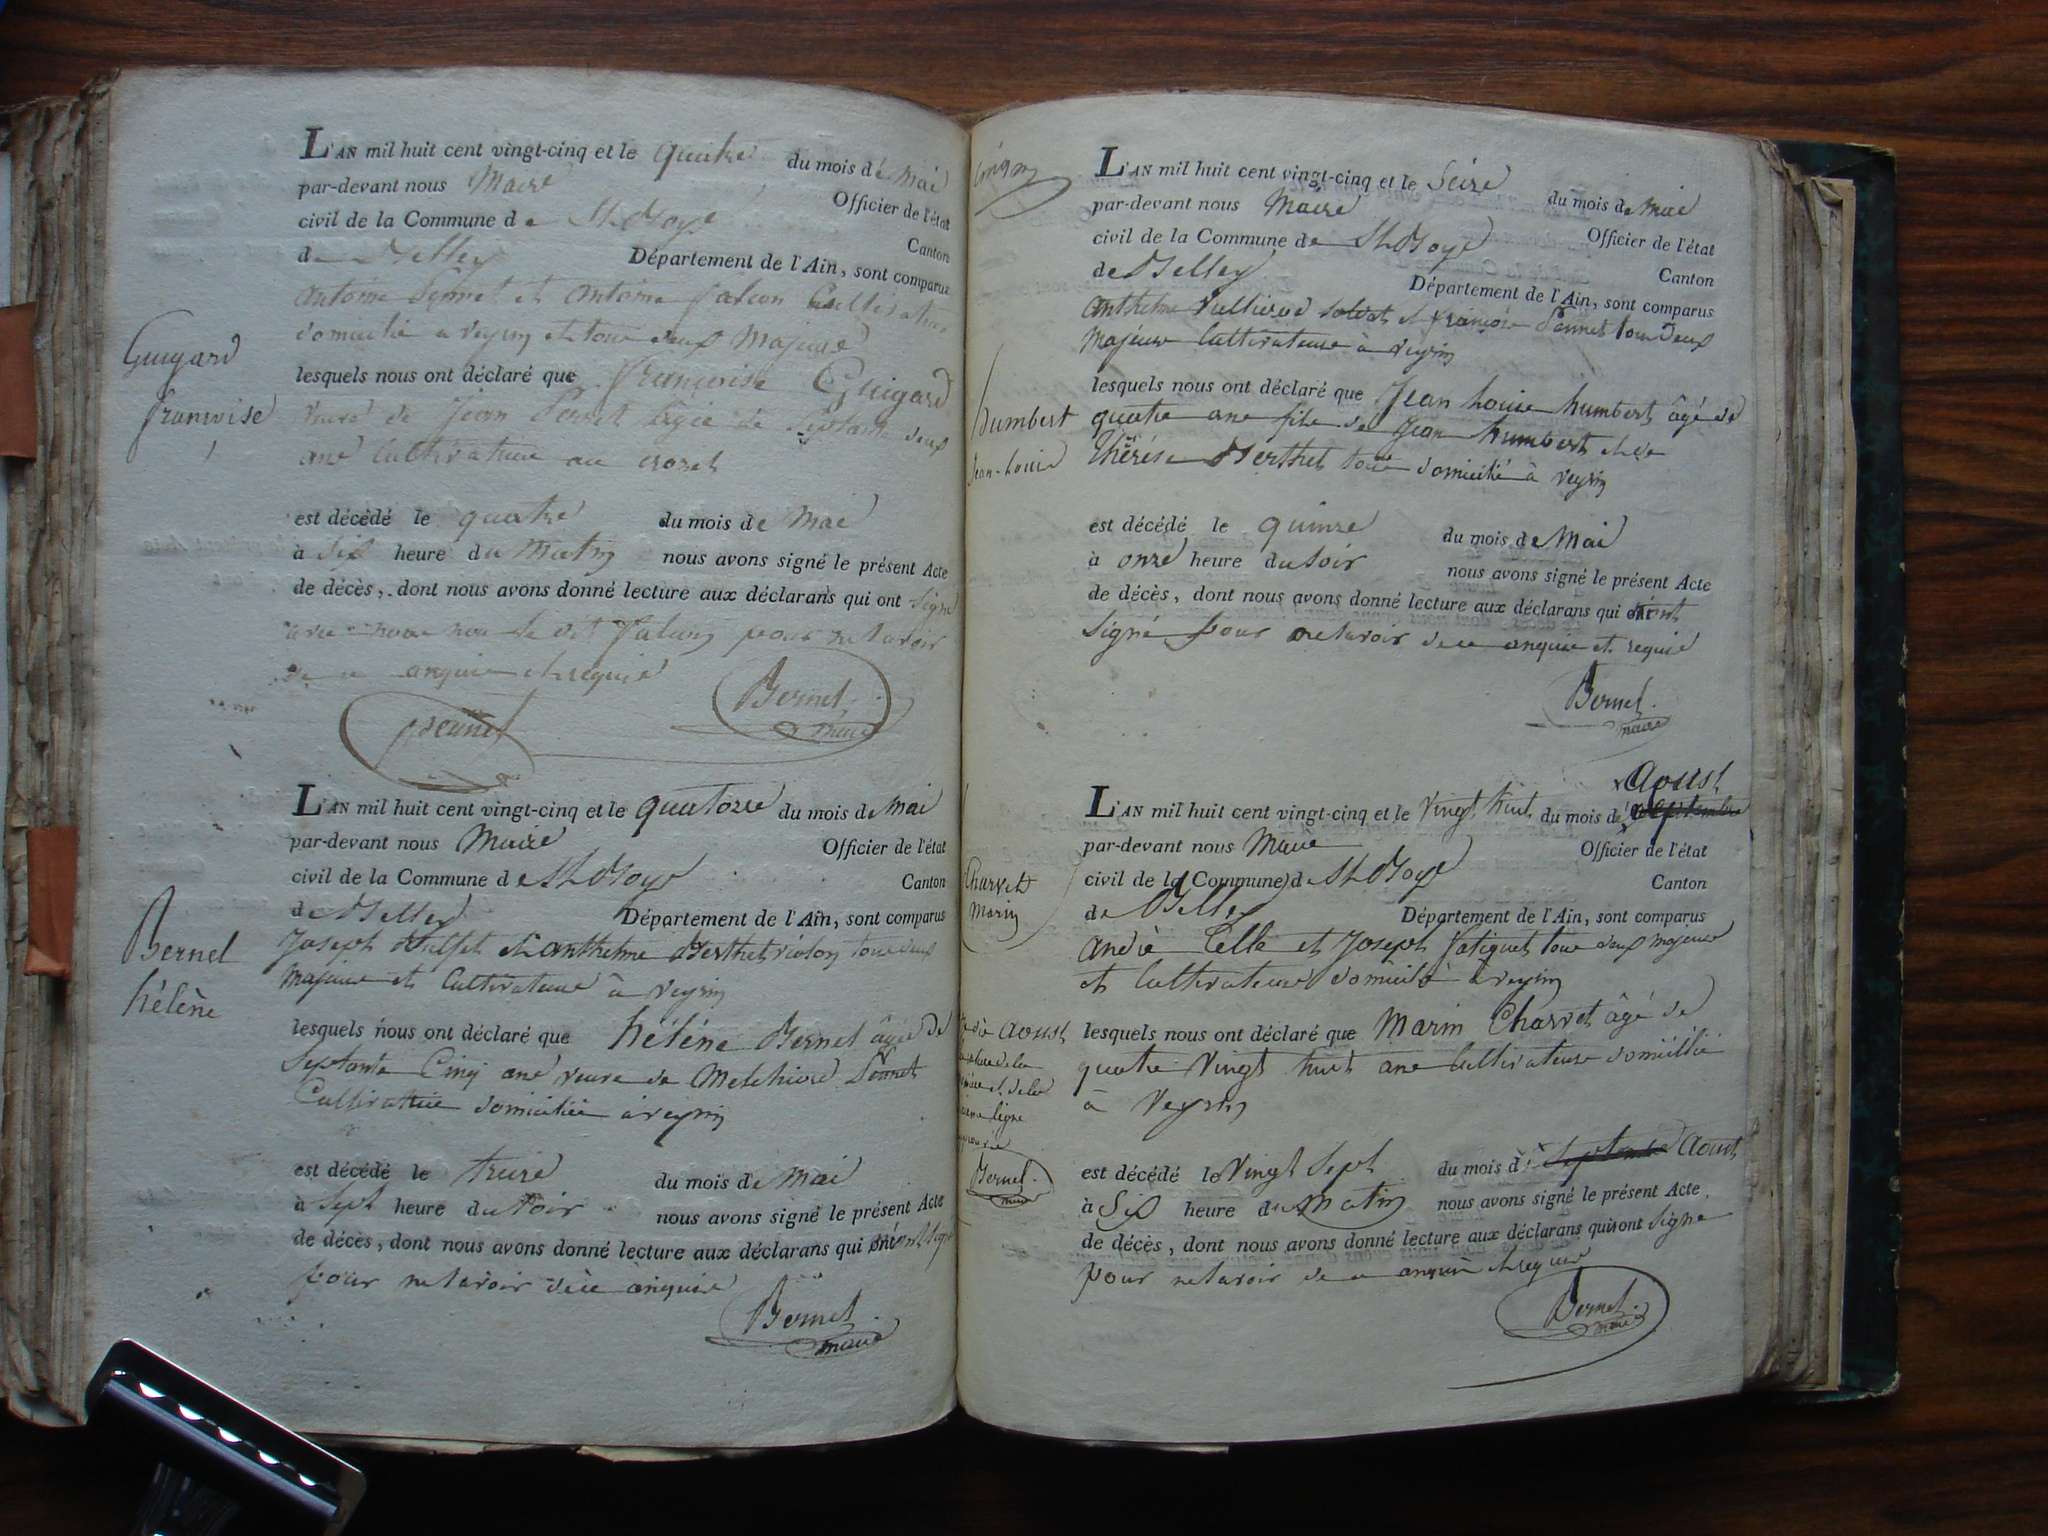 L'AN mil huit cent vingt-cinq et le quatre du mois de mai
par-devant nous Maire Officier de l'état
civil de la Commune de St Boys Canton
de Belley Département de l'Ain, sont comparus
antoine Pennet et antoine falcon Cultivateur
domicilié a veyrin et tous deux Majeurs
Guigard
françoise
lesquels nous ont déclaré que françoise Guigard
veuve de Jean Pennet agée de Septante deux
ans Cultivatrice au
est décédé le quatre du mois de Mai
à Six heure du Matin nous avons signé le présent Acte
de décès, dont nous avons donné lecture aux déclarans qui ont signé
avec nous non le dit falcon pour ne savoir
de ce enquis et requis
Pennet
Bernel
maire
L'AN mil huit cent vingt-cinq et le quatorze du mois de Mai
par-devant nous Maire Officier de l'état
civil de la Commune de St Boys Canton
de Belley Département de l'Ain, sont comparus
Joseph et anthelme Berthet tous deux
Majeurs et Cultivateurs à veyrin
Bernel
hélène
lesquels nous ont déclaré que hélène Bernel âgée de
Septante Cinq ans, veuve de Melchior Pennet
Cultivatrice domiciliée à veyrin
est décédé le treize du mois de Mai
à Sept heure du Soir nous avons signé le présent Acte
de décès, dont nous avons donné lecture aux déclarans qui n'ont signé
pour ne savoir de ce enquis
Bernel
maire
L'AN mil huit cent vingt-cinq et le Seize du mois de Mai
par-devant nous Maire Officier de l'état
civil de la Commune de St Boys Canton
de Belley Département de l'Ain, sont comparus
anthelme soldat et françois Pennet tous Deux
Majeurs Cultivateurs à veyrin
humbert
Jean-Louis
lesquels nous ont déclaré que Jean Louis humbert âgé de
quatre ans fils de Jean humbert et de
Thérèse Berthet tous domicilié à veyrin
est décédé le quinze du mois de Mai
à onze heure du Soir nous avons signé le présent Acte
de décès, dont nous avons donné lecture aux déclarans qui n'ont
Signé pour ne savoir de ce enquis et requis
Bernel
maire
Aoust
L'AN mil huit cent vingt-cinq et le Vingt huit du mois de Septembre
par-devant nous Maire Officier de l'état
civil de la Commune de St Boys Canton
de Belley Département de l'Ain, sont comparus
andré Celle et Joseph fatiguet tous deux majeurs
et Cultivateurs domicilié à veyrin
Charvet
Marin
lesquels nous ont déclaré que Marin Charvet âgé de
quatre Vingt huit ans Cultivateur domicilié
à Veyrin
Aoust
Bernel
maire
est décédé le Vingt Sept du mois de Septembre Aoust
à Six heure du Matin nous avons signé le présent Acte
de décès, dont nous avons donné lecture aux déclarans qui n'ont signé
pour ne savoir de ce enquis et requis
Bernel
maire